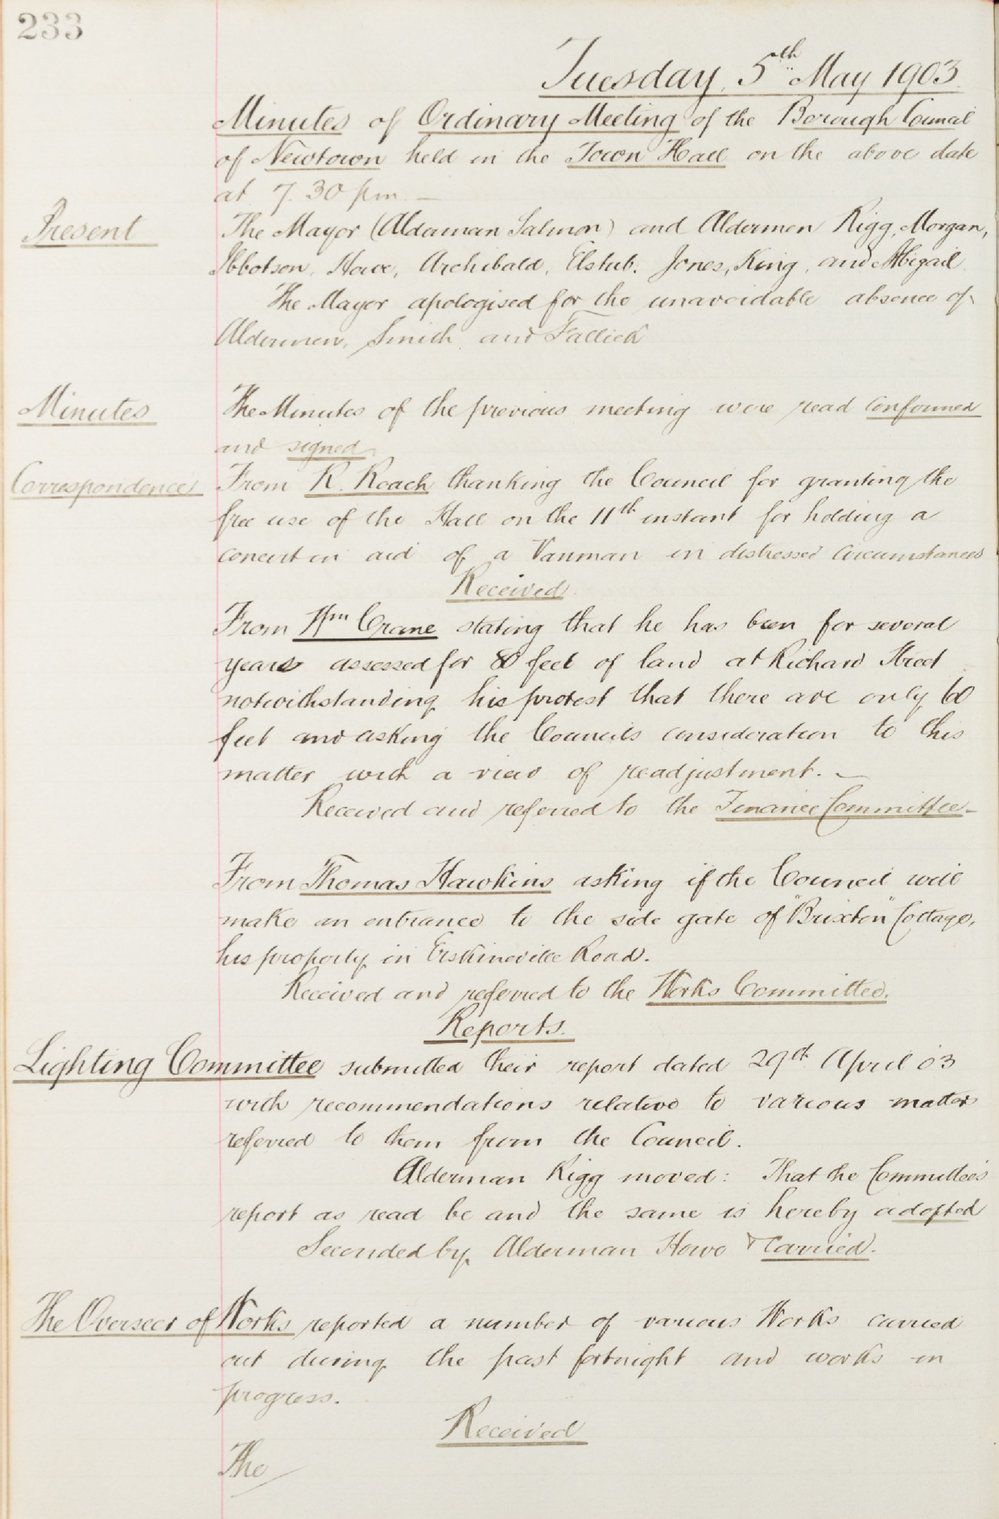 233
Tuesday, 5th May 1903
Minutes of Ordinary Meeting of the Borough Council
of Newtown held in the Town Hall on the above date
at 7.30 pm. —
Present The Mayor (Alderman Salmon) and Aldermen Rigg, Morgan,
Ibbotson, Howe, Archibald, Elstub, Jones, King, and Abigail
The Mayor apologised for the unavoidable absence of
Aldermen, Smith and Fallick
Minutes The Minutes of the previous meeting were read confirmed
and signed
Correspondence From R. Roach thanking the Council for granting the
free use of the Hall on the 11th instant for holding a
concert in aid of a Vanman in distressed circumstances
Received
From Wm Crane stating that he has been for several
years assessed for 80 feet of land at Richard Street
notwithstanding his protest that there are only 60
feet and asking the Councils consideration to this
matter with a view of readjustment. —
Received and referred to the Finance Committee —
From Thomas Hawkins asking if the Council will
make an entrance to the side gate of "Brixton" Cottage,
his property in Erskineville Road.
Received and referred to the Works Committee.
Reports.
Lighting Committee submitted their report dated 29th April 03
with recommendations relative to various matters
referred to them from the Council.
Alderman Rigg moved: That the Committee's
report as read be and the same is hereby adopted
Seconded by Alderman Howe & Carried.
The Overseer of Works reported a number of various Works carried
out during the past fortnight and works in
progress.
Received
The